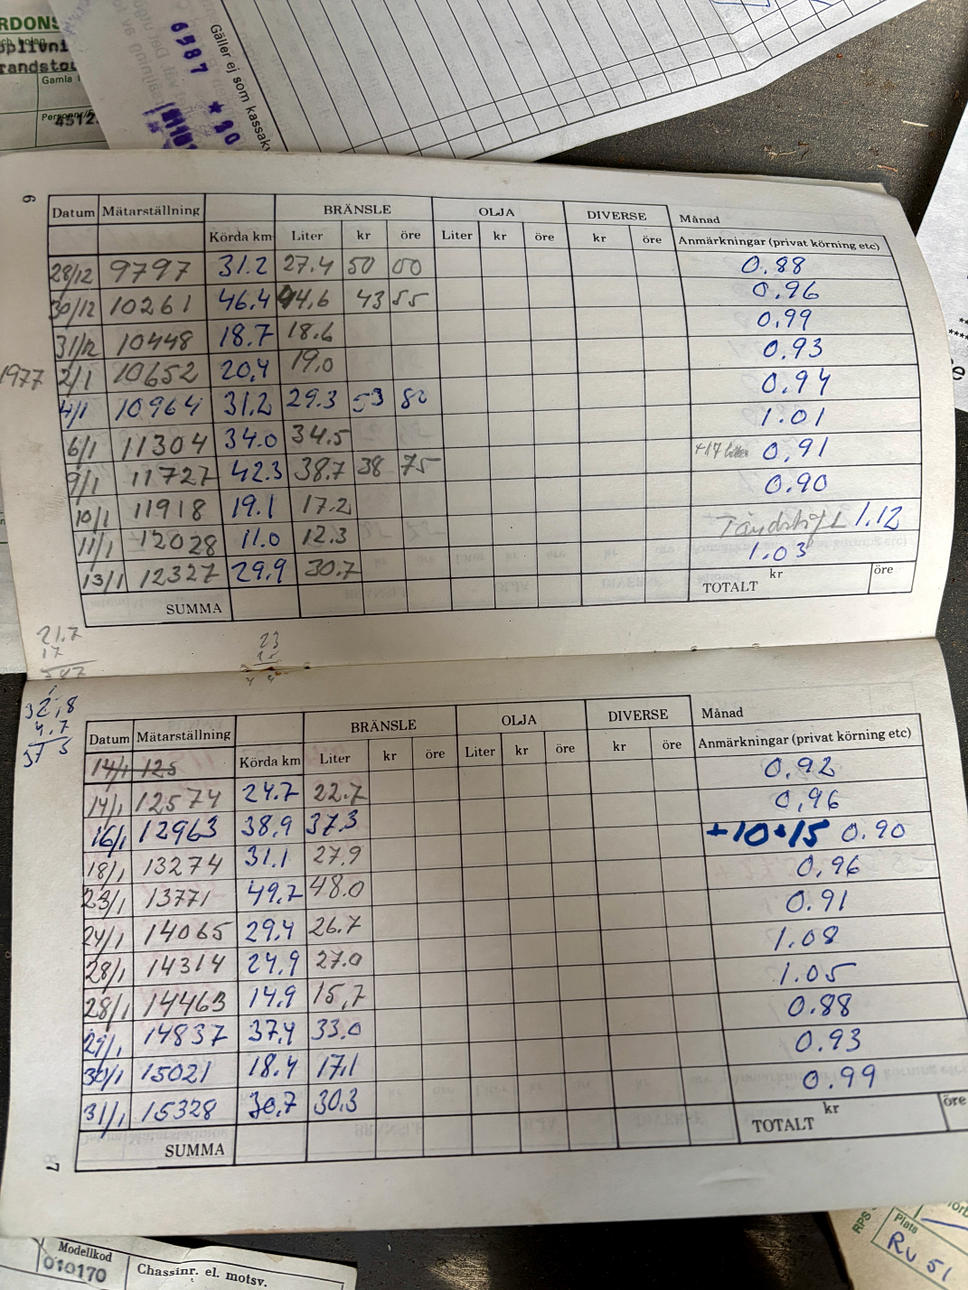 RDONS
Gamla
4512
6587 ★ 80
Gäller ej som kassak
6
Datum Mätarställning BRÄNSLE OLJA DIVERSE Månad
Körda km Liter kr öre Liter kr öre kr öre Anmärkningar (privat körning etc)
28/12 9797 31.2 27.4 50 00 0.88
30/12 10261 46.4 44.6 43 55 0.96
31/12 10448 18.7 18.6 0.99
1977 2/1 10652 20,4 19,0 0.93
4/1 10964 31.2 29.3 53 80 0.94
6/1 11304 34.0 34.5 1.01
9/1 11727 42.3 38.7 38 75 +17 0.91
10/1 11918 19.1 17.2 0.90
11/1 12028 11.0 12.3 Tändstift 1.12
13/1 12327 29.9 30.7 1.03
SUMMA TOTALT kr öre
21.7
17
23
32,8
4.7
Datum Mätarställning BRÄNSLE OLJA DIVERSE Månad
Körda km Liter kr öre Liter kr öre kr öre Anmärkningar (privat körning etc)
14/1 125 0.92
14/1 12574 24.7 22.7 0,96
16/1 12963 38,9 37.3 +10+15 0.90
18/1 13274 31.1 27.9 0,96
23/1 13771 49,7 48.0 0.91
24/1 14065 29,4 26.7 1.08
28/1 14314 24,9 27.0 1.05
28/1 14463 14,9 15,7 0.88
29/1 14837 37,4 33.0 0.93
30/1 15021 18.4 17,1 0.99
31/1 15328 30,7 30.3
SUMMA TOTALT kr öre
7
Modellkod
010170
Chassinr. el. motsv.
RPS
Plats
RU 51